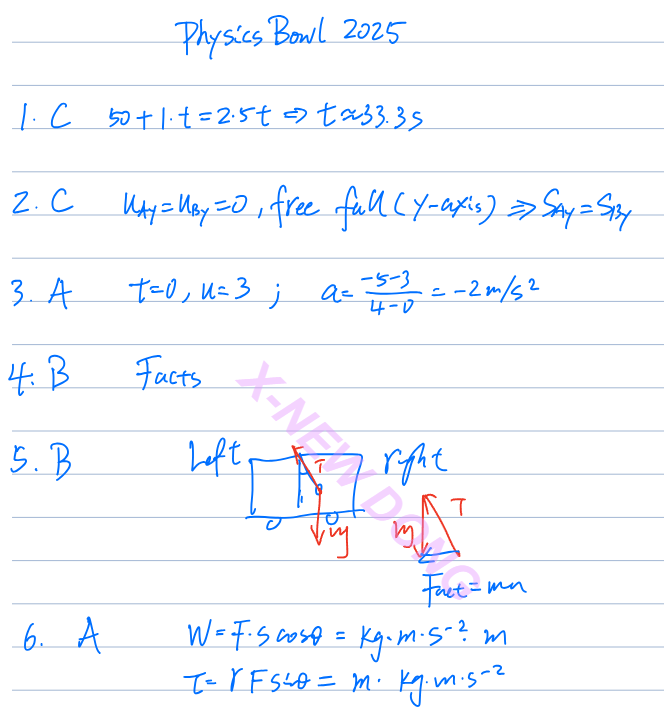 Physics Bowl 2025
1. C 50+1·t=2.5t ⇒ t≈33.3s
2. C u_Ay=u_By=0, free fall (y-axis) ⇒ S_Ay=S_By
3. A t=0, u=3 ; a=\frac{-5-3}{4-0}=-2m/s²
4. B Facts
5. B Left T right
mg
mg T
Fnet=ma
6. A W=F·s cosθ = kg·m·s⁻²·m
τ=rFsinθ = m· kg·m·s⁻²
X-NEW DONG